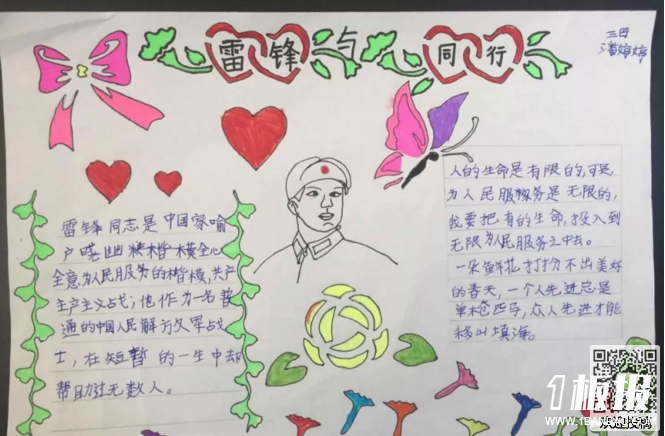 雷锋与同行
三四
潘婷婷
雷锋同志是中国家喻
户 全心
全意为人民服务的楷模,共产
主产主义占戈;他作为一名普
通的中国人民解放军占戈
士,在短暂的一生中却
帮助过无数人。
人的生命是有限的,可是
为人民服务是无限的,
我要把有的生命,投入到
无限为人民服务之中去。
一朵鲜花打扮不出美好
的春天,一个人先进总是
单枪匹马,众人先进才能
移山填海。
1板报